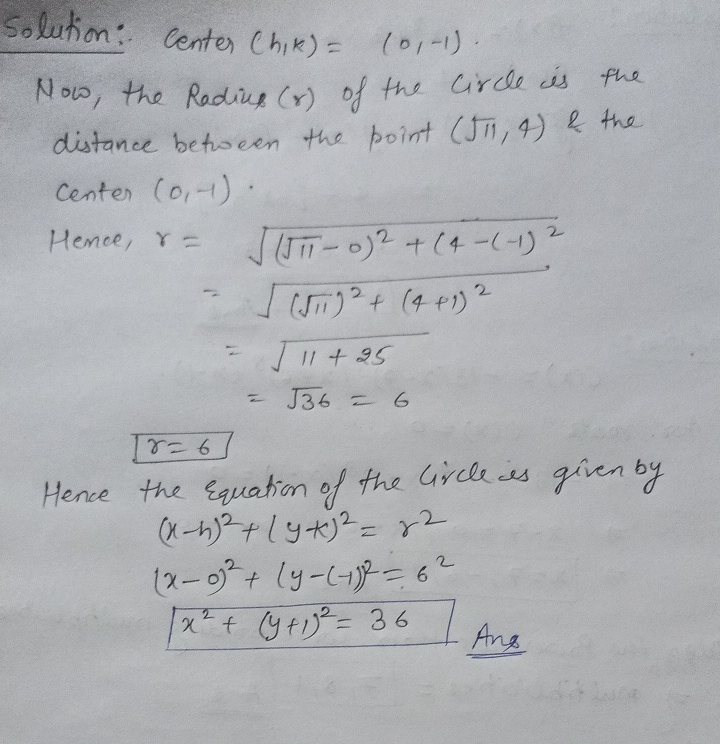 Solution:. Center (h,k) = (0,-1).
Now, the Radius (r) of the Circle is the
distance between the point (√11, 4) & the
Center (0,-1).
Hence, r = √(√11-0)² + (4-(-1)²
= √(√11)² + (4+1)²
= √11 + 25
= √36 = 6
r = 6
Hence the Equation of the Circle is given by
(x-h)² + (y-k)² = r²
(x-0)² + (y-(-1))² = 6²
x² + (y+1)² = 36 Ans